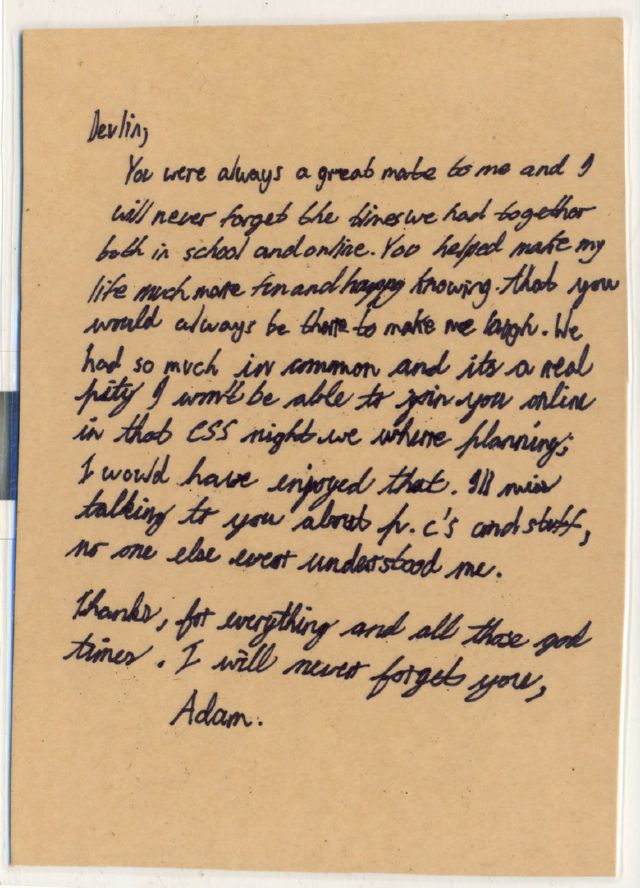 Devlin,
You were always a great mate to me and I
will never forget the times we had together
both in school and online. You helped make my
life much more fun and happy knowing that you
would always be there to make me laugh. We
had so much in common and its a real
pity I won't be able to join you online
in that CSS night we where planning;
I would have enjoyed that. I'll miss
talking to you about p.c's and stuff,
no one else ever understood me.
Thanks, for everything and all those good
times. I will never forget you,
Adam.